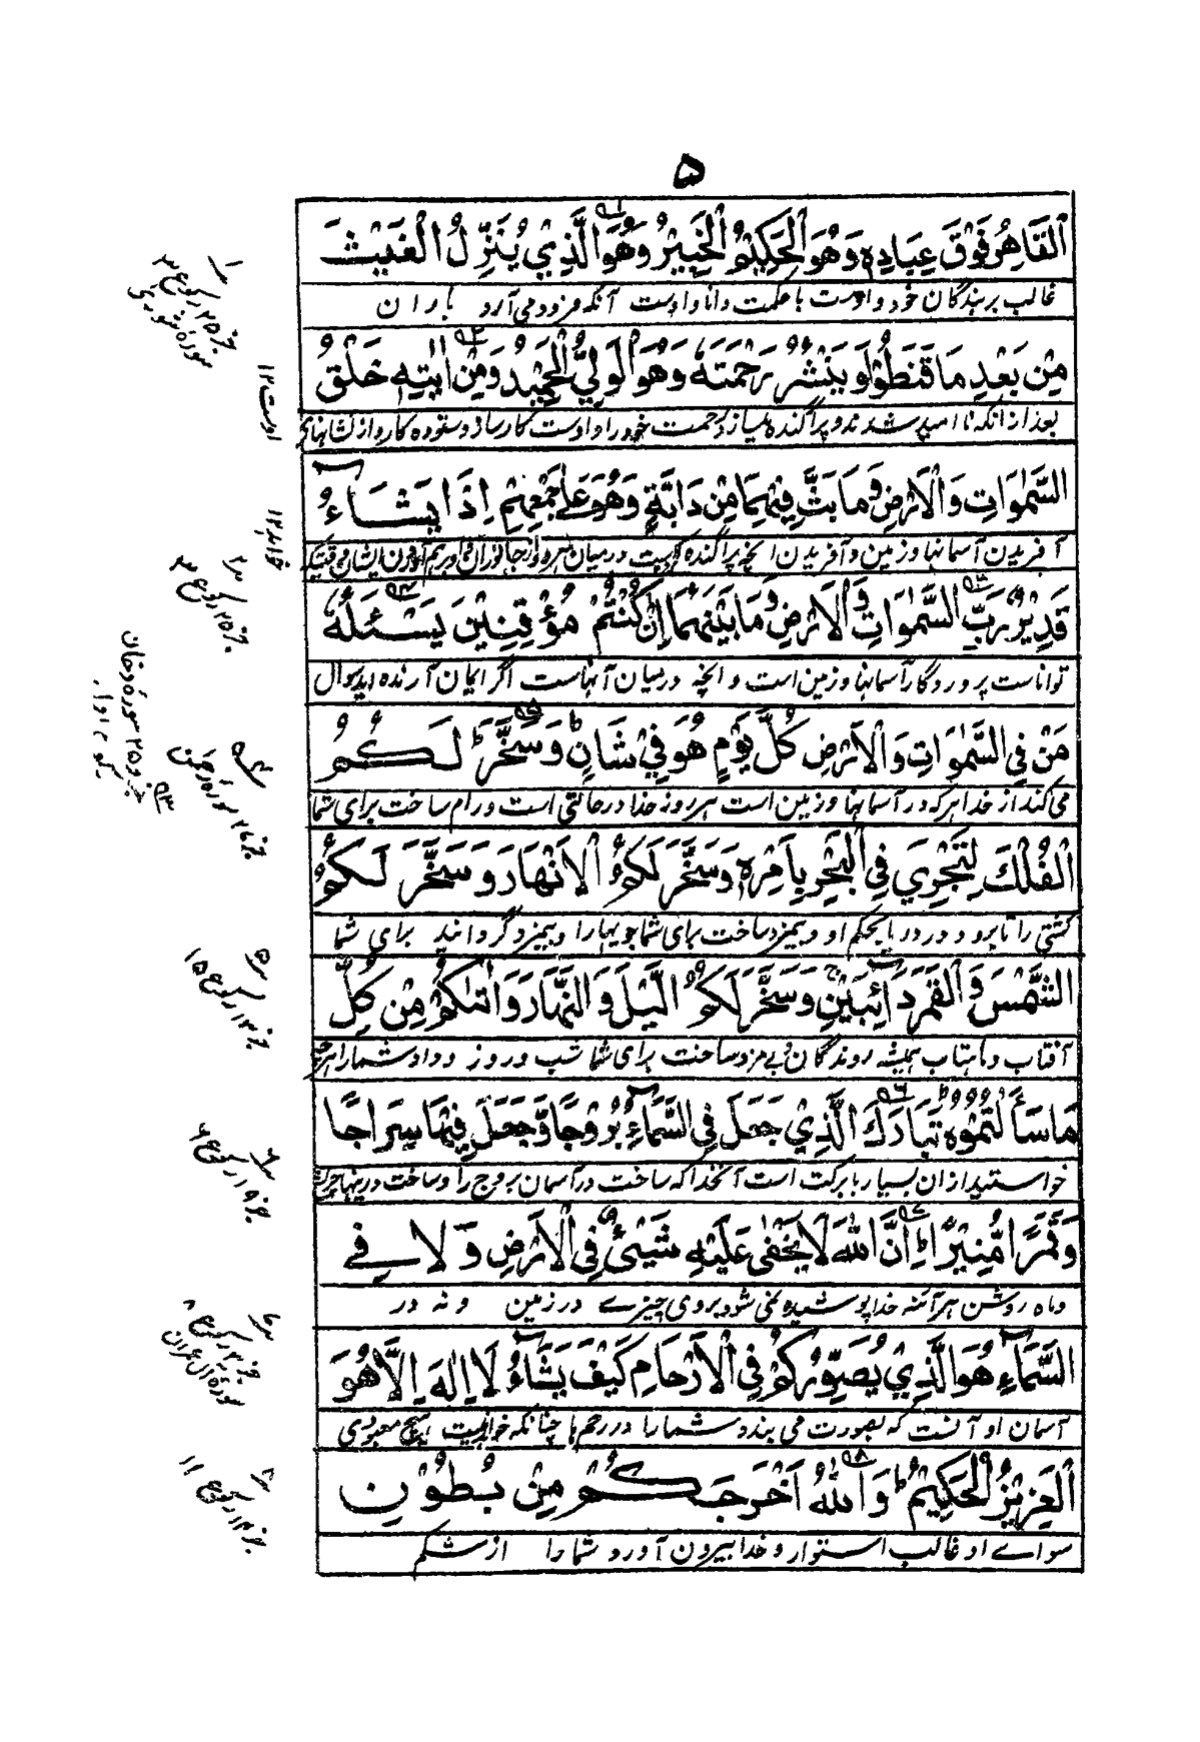 ۵
الْقَاهِرُ فَوْقَ عِبَادِهٖ وَهُوَ الْحَكِيْمُ الْخَبِيْرُ وَهُوَ الَّذِيْ يُنَزِّلُ الْغَيْثَ
غالب بر بندگان خود و اوست با حکمت دانا و اوست آنکه فرود می آرد باران
مِنْ بَعْدِ مَا قَنَطُوْا وَيَنْشُرُ رَحْمَتَهٗ وَهُوَ الْوَلِيُّ الْحَمِيْدُ وَمِنْ اٰيٰتِهٖ خَلْقُ
بعد از آنکه نا امید شدند و پراگنده میسازد رحمت خود را و اوست کارساز و ستوده کار و از نشانهای
السَّمٰوَاتِ وَالْاَرْضِ وَمَا بَثَّ فِيْهِمَا مِنْ دَابَّةٍ وَهُوَ عَلٰى جَمْعِهِمْ اِذَا يَشَاءُ
آفریدن آسمانها و زمین و آفریدن آنچه پراگنده کرده است در میان
قَدِيْرٌ رَبِّ السَّمٰوَاتِ وَالْاَرْضِ وَمَا بَيْنَهُمَا اِنْ كُنْتُمْ مُؤْقِنِيْنَ يَسْئَلُهٗ
تواناست پروردگار آسمانها و زمین است و آنچه درمیان آنهاست اگر ایمان آرنده اید سوال
مَنْ فِي السَّمٰوَاتِ وَالْاَرْضِ كُلَّ يَوْمٍ هُوَ فِيْ شَانٍ ط وَسَخَّرَ لَكُمُ
می کند از خدا هر که در آسمانها و زمین است هر روز خدا در حالتی است و رام ساخت برای شما
الْفُلْكَ لِتَجْرِيَ فِي الْبَحْرِ بِاَمْرِهٖ وَسَخَّرَ لَكُمُ الْاَنْهَارَ وَسَخَّرَ لَكُمُ
کشتی را تا برود در دریا بحکم او و بیمزد ساخت برای شما جویها را و بیمزد گردانید برای شما
الشَّمْسَ وَالْقَمَرَ دَائِبَيْنِ وَسَخَّرَ لَكُمُ الَّيْلَ وَالنَّهَارَ وَاٰتٰىكُمْ مِنْ كُلِّ
آفتاب و ماهتاب همیشه روندگان و بی مزد ساخت برای شما شب و روز و داد شما را از هر چه
مَا سَاَلْتُمُوْهُ تَبَارَكَ الَّذِيْ جَعَلَ فِي السَّمَاءِ بُرُوْجًا وَّجَعَلَ فِيْهَا سِرَاجًا
خواستید از ان بسیار با برکت است آنخدا که ساخت در آسمان بروج را و ساخت در ینها چراغ
وَقَمَرًا مُّنِيْرًا ط اِنَّ اللّٰهَ لَا يَخْفٰى عَلَيْهِ شَيْئٌ فِي الْاَرْضِ وَلَا فِي
و ماه روشن هر آئنه خدا پوشیده نمی شود بر وی چیزے در زمین و نه در
السَّمَاءِ هُوَ الَّذِيْ يُصَوِّرُكُمْ فِي الْاَرْحَامِ كَيْفَ يَشَاءُ لَا اِلٰهَ اِلَّا هُوَ
آسمان او آنست که بصورت می بندد شما را در رحم ها چنانکه خواهد نیست هیچ معبودی
الْعَزِيْزُ الْحَكِيْمُ ط وَاللّٰهُ اَخْرَجَكُمْ مِنْ بُطُوْنِ
سواے او غالب استوار و خدا بیرون آورد شما را از شکم
جز ۲۵ رکوع ۳
سوره شوری
اوست ۱۲
جز ۲۵ رکوع ۳
جز ۲۵ سوره دخان
جز ۲۷ سوره رحمن
جز ۱۳ رکوع ۱۵
جز ۱۹ رکوع ۴
جز ۳ رکوع ۸
سوره آل عمران
جز ۱۴ رکوع ۱۱